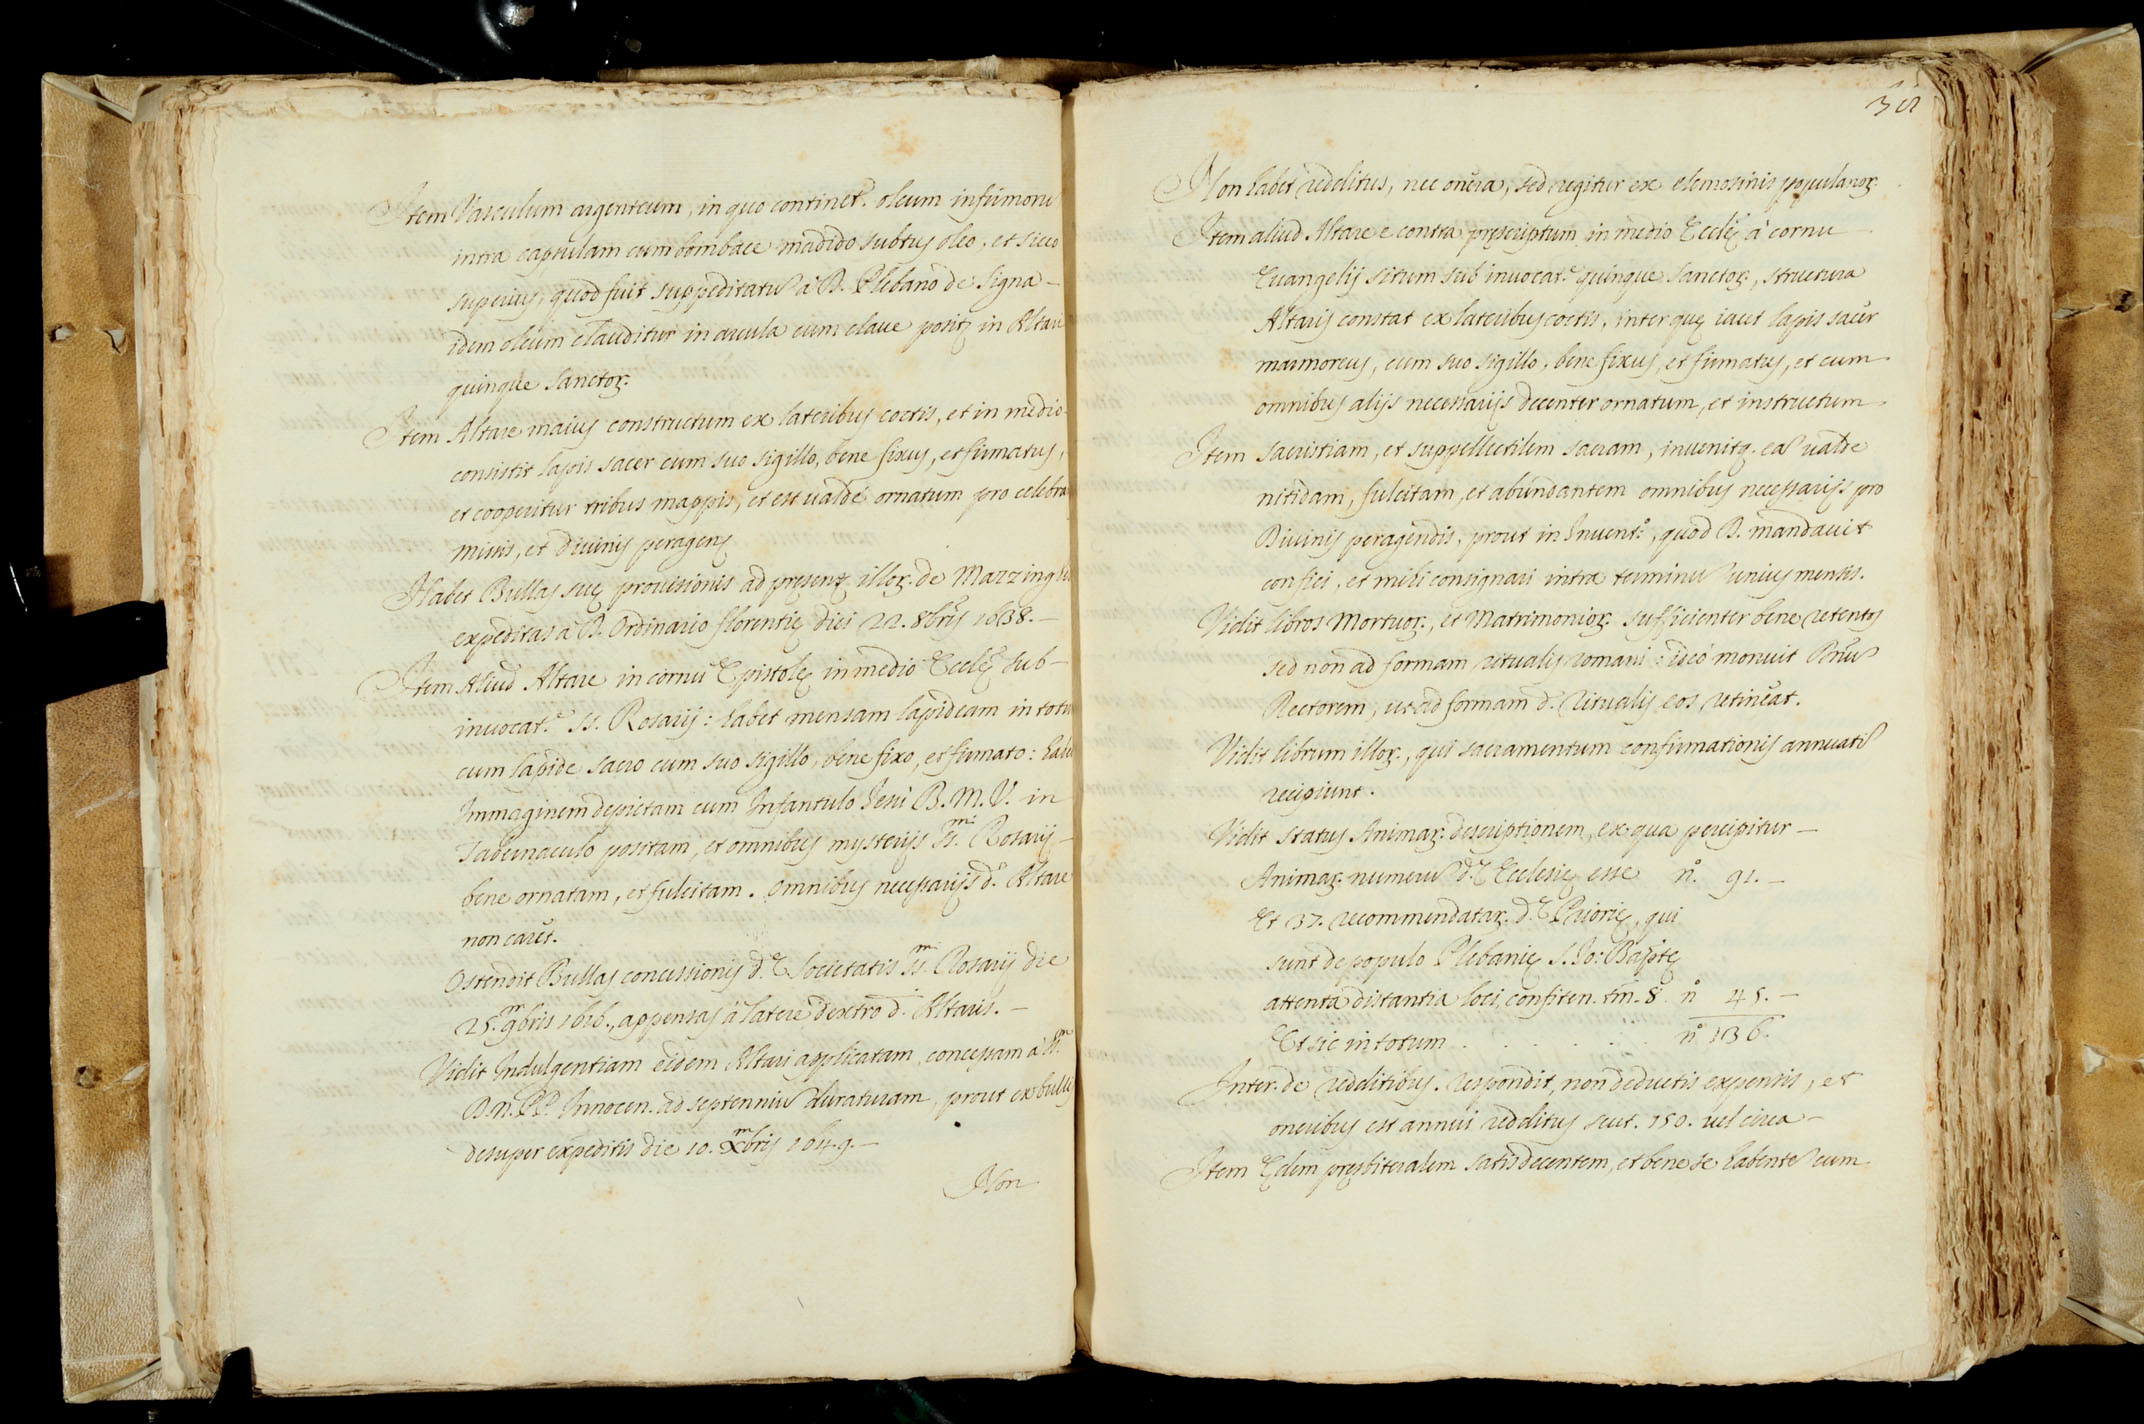 Item Vasculum argenteum, in quo continet. oleum infirmorũ
intra capsulam cum bombace madido subtus oleo, et sicco
superius, quod fuit suppeditatũ à D. Plebano de Signa -
idem oleum clauditur in arcula cum claue posit. in Altari
quinque Sanctor.
Item Altare maius constructum ex lateribus coctis, et in medio
consistit lapis sacer cum suo sigillo, bene fixus, et firmatus,
et cooperitur tribus mappis, et est ualdè ornatum pro celebra
missis, et diuinis peragens
Habet Bullas suę prouisionis ad present. illor. de Mazzinghi
expeditas à D. Ordinario florentię diei 22. 8bris 1638. -
Item Aliud Altare in cornu Epistolę in medio Ecclę sub -
inuocat.e SS. Rosarij: habet mensam lapideam in totũ
cum lapide sacro cum suo sigillo, bene fixo, et firmato: habe
Immaginem depictam cum Infantulo Iesu B. M. V. in
Tabernaculo positam, et omnibus mysterijs SS.mi Rosarij -
bene ornatam, et fulcitam. omnibus necessarijs d.o Altare
non caret.
Ostendit Bullas concessionis d.ę Societatis SS.mi Rosarij die
25. 9mbris 1616., appensas à latere dextro d.i Altaris. -
Vidit Indulgentiam eidem Altari applicatam, concessam à SS.mo
D. N. PP. Innocen. ad septenniũ duraturam, prout ex bullis
desuper expeditis die 10. Xmbris 1649. -
Non
Non habet redditus, nec onera, sed regitur ex elemosinis popularior.
Item aliud Altare e contra pręscriptum in medio Ecclę à cornu
Euangelij situm sub inuocat.e quinque Sanctor., structura
Altaris constat ex lateribus coctis, inter quę iacet lapis sacer
marmoreus, cum suo sigillo, bene fixus, et firmatus, et cum
omnibus alijs necessarijs decenter ornatum, et instructum
Item sacristiam, et suppellectilem sacram, inuenitq. eã ualde
nitidam, fulcitam, et abundantem omnibus necessarijs pro
Diuinis peragendis, prout in Inuent.o, quod D. mandauit
confici, et mihi consignari intra terminũ unius mensis.
Vidit libros Mortuor., et Matrimonior. sufficienter bene retentos
sed non ad formam ritualis romani: ideò monuit Rmũ
Rectorem, ut ad formam d.i Ritualis eos retineat.
Vidit librum illor., qui sacramentum confirmationis annuatĩ
recipiunt.
Vidit status Animar. descriptionem, ex qua percipitur -
Animar. numerũ d.ę Ecclesię esse n.o 91. -
Et 37. recommendatar. d.ę Priorię, qui
sunt de populo Plebanię S. Jo: Baptę
attenta distantia loci, confiten. tm. 8. n.o 45. -
Et sic in totum . . . . . . n.o 136.
Inter. de redditibus. respondit, non deductis expensis, et
oneribus est annui redditus scut. 150. uel circa -
Item Ędem pręsbiteralem satis decentem, et bene se habentẽ cum